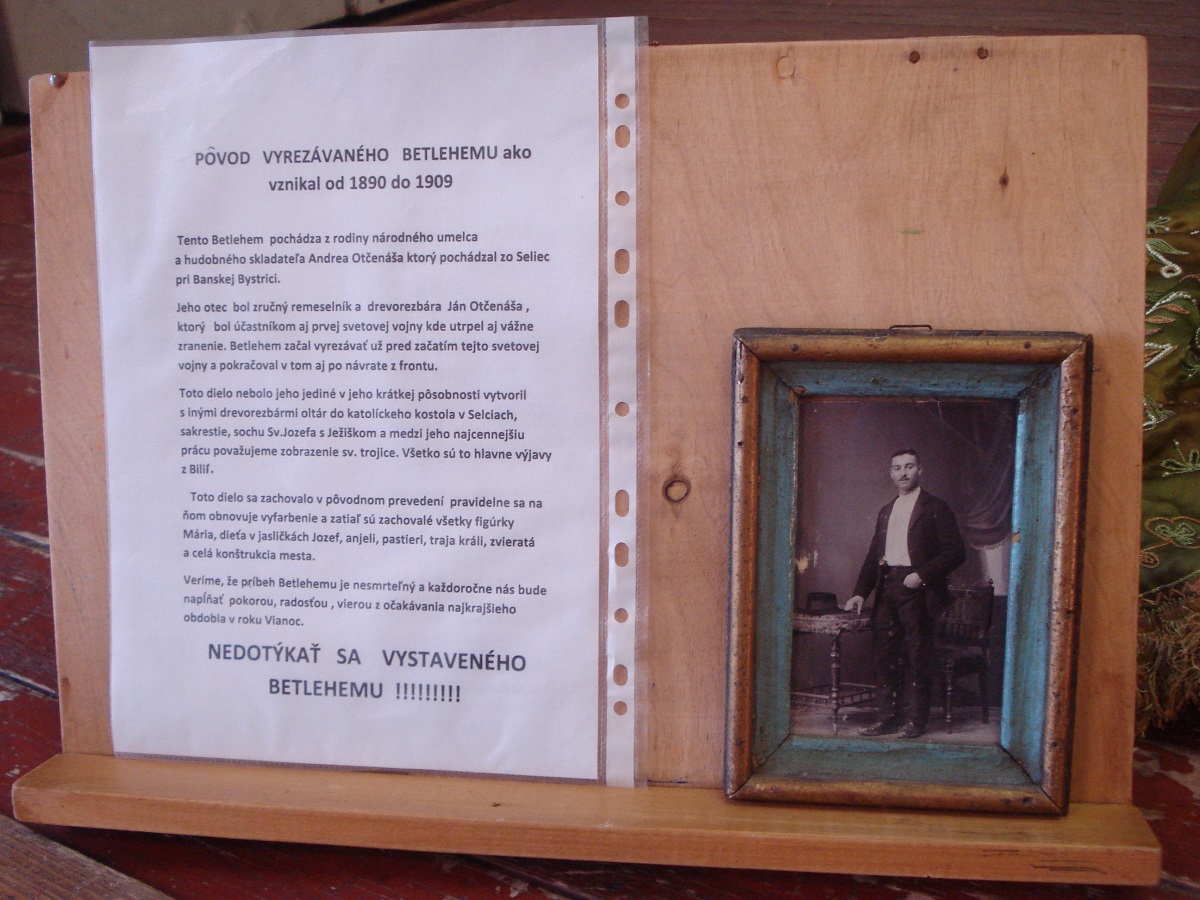 PÔVOD VYREZÁVANÉHO BETLEHEMU ako
vznikal od 1890 do 1909
Tento Betlehem pochádza z rodiny národného umelca
a hudobného skladateľa Andrea Otčenáša ktorý pochádzal zo Seliec
pri Banskej Bystrici.
Jeho otec bol zručný remeselník a drevorezbára Ján Otčenáša ,
ktorý bol účastníkom aj prvej svetovej vojny kde utrpel aj vážne
zranenie. Betlehem začal vyrezávať už pred začatím tejto svetovej
vojny a pokračoval v tom aj po návrate z frontu.
Toto dielo nebolo jeho jediné v jeho krátkej pôsobnosti vytvoril
s inými drevorezbármi oltár do katolíckeho kostola v Selciach,
sakrestie, sochu Sv.Jozefa s Ježiškom a medzi jeho najcennejšiu
prácu považujeme zobrazenie sv. trojice. Všetko sú to hlavne výjavy
z Bilií.
Toto dielo sa zachovalo v pôvodnom prevedení pravidelne sa na
ňom obnovuje vyfarbenie a zatiaľ sú zachovalé všetky figúrky
Mária, dieťa v jasličkách Jozef, anjeli, pastieri, traja králi, zvieratá
a celá konštrukcia mesta.
Veríme, že príbeh Betlehemu je nesmrteľný a každoročne nás bude
napĺňať pokorou, radosťou , vierou z očakávania najkrajšieho
obdobia v roku Vianoc.
NEDOTÝKAŤ SA VYSTAVENÉHO
BETLEHEMU !!!!!!!!!